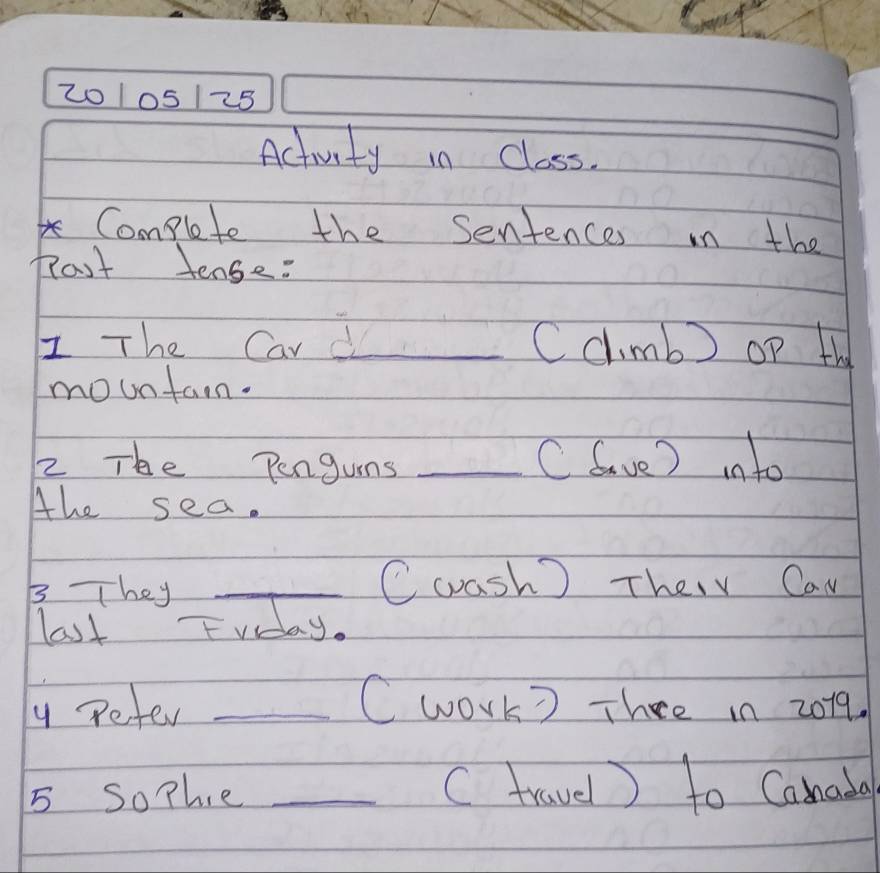 20/05/25
Activity in Class.
* Complete the Sentences in the
Past tense:
1 The Car d______ (climb) op the
mountain.
2 The Penguins ____ (dive) into
the sea.
3 They _____ (wash) Their Car
last Friday.
4 Peter ____ (work) There in 2019.
5 Sophie ____ (travel) to Canada.